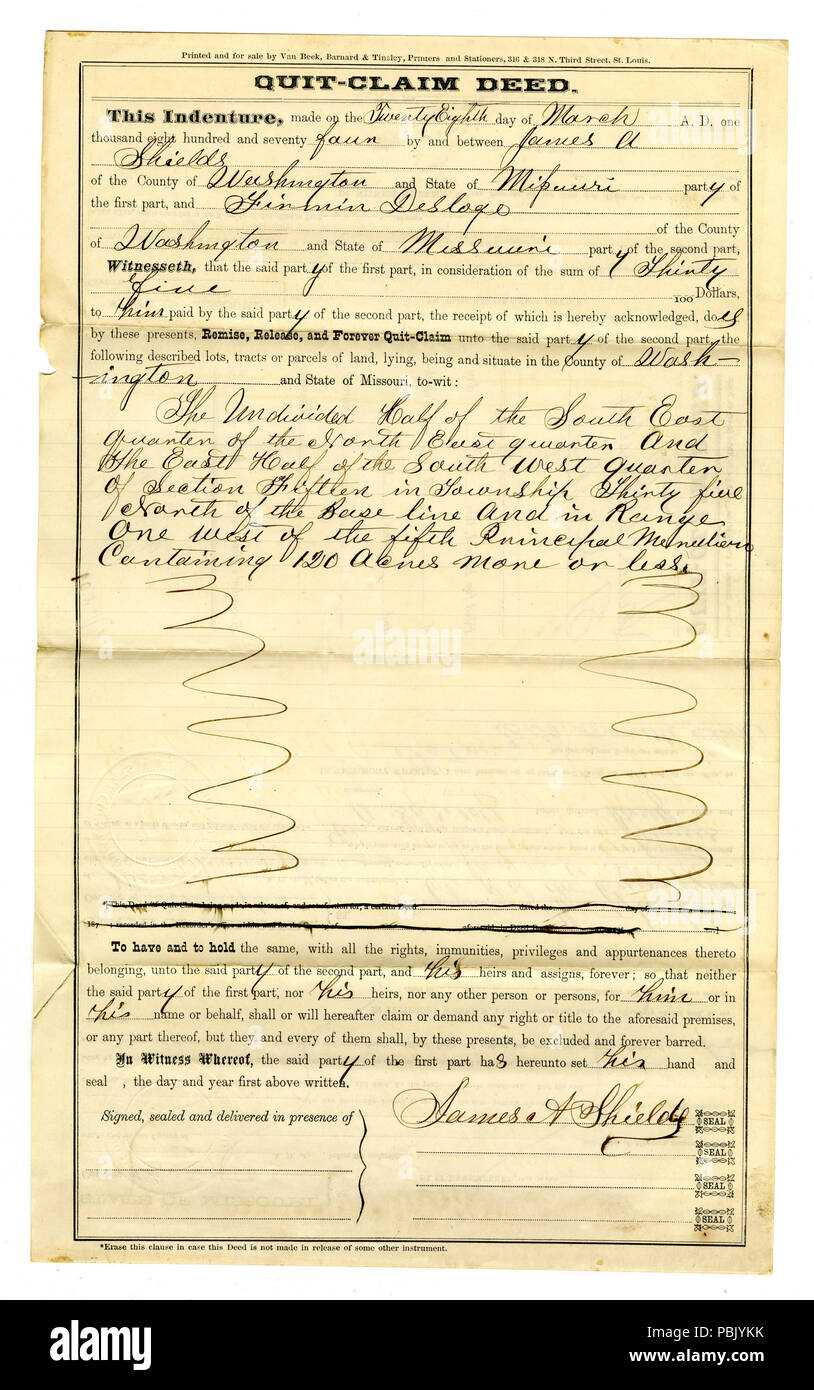 Printed and for sale by Van Beek, Barnard & Tinsley, Printers and Stationers, 316 & 318 N. Third Street, St. Louis.
QUIT-CLAIM DEED.
This Indenture, made on the Twenty Eighth day of March A. D. one
thousand eight hundred and seventy four by and between James A
Shields
of the County of Washington and State of Missouri party of
the first part, and Firmin Desloge
of the County
of Washington and State of Missouri party of the second part,
Witnesseth, that the said party of the first part, in consideration of the sum of Thirty
five 100 Dollars,
to him paid by the said party of the second part, the receipt of which is hereby acknowledged, does
by these presents, Remise, Release, and Forever Quit-Claim unto the said party of the second part, the
following described lots, tracts or parcels of land, lying, being and situate in the County of Wash-
-ington and State of Missouri, to-wit:
The Undivided Half of the South East
quarter of the North East quarter And
the East Half of the South West quarter
of Section Fifteen in Township Thirty five
North of the Base line And in Range
One west of the fifth Principal Meridian
Containing 120 Acres more or less.
*This Deed of Quit-Claim being made in release of, and for, a certain Deed dated the day of
187 recorded in the Recorder's
To have and to hold the same, with all the rights, immunities, privileges and appurtenances thereto
belonging, unto the said party of the second part, and his heirs and assigns, forever; so that neither
the said party of the first part, nor his heirs, nor any other person or persons, for him or in
his name or behalf, shall or will hereafter claim or demand any right or title to the aforesaid premises,
or any part thereof, but they and every of them shall, by these presents, be excluded and forever barred.
In Witness Whereof, the said party of the first part has hereunto set his hand and
seal , the day and year first above written.
Signed, sealed and delivered in presence of
James A Shields SEAL
SEAL
SEAL
SEAL
*Erase this clause in case this Deed is not made in release of some other instrument.
alamy
Image ID: PBJYKK
www.alamy.com